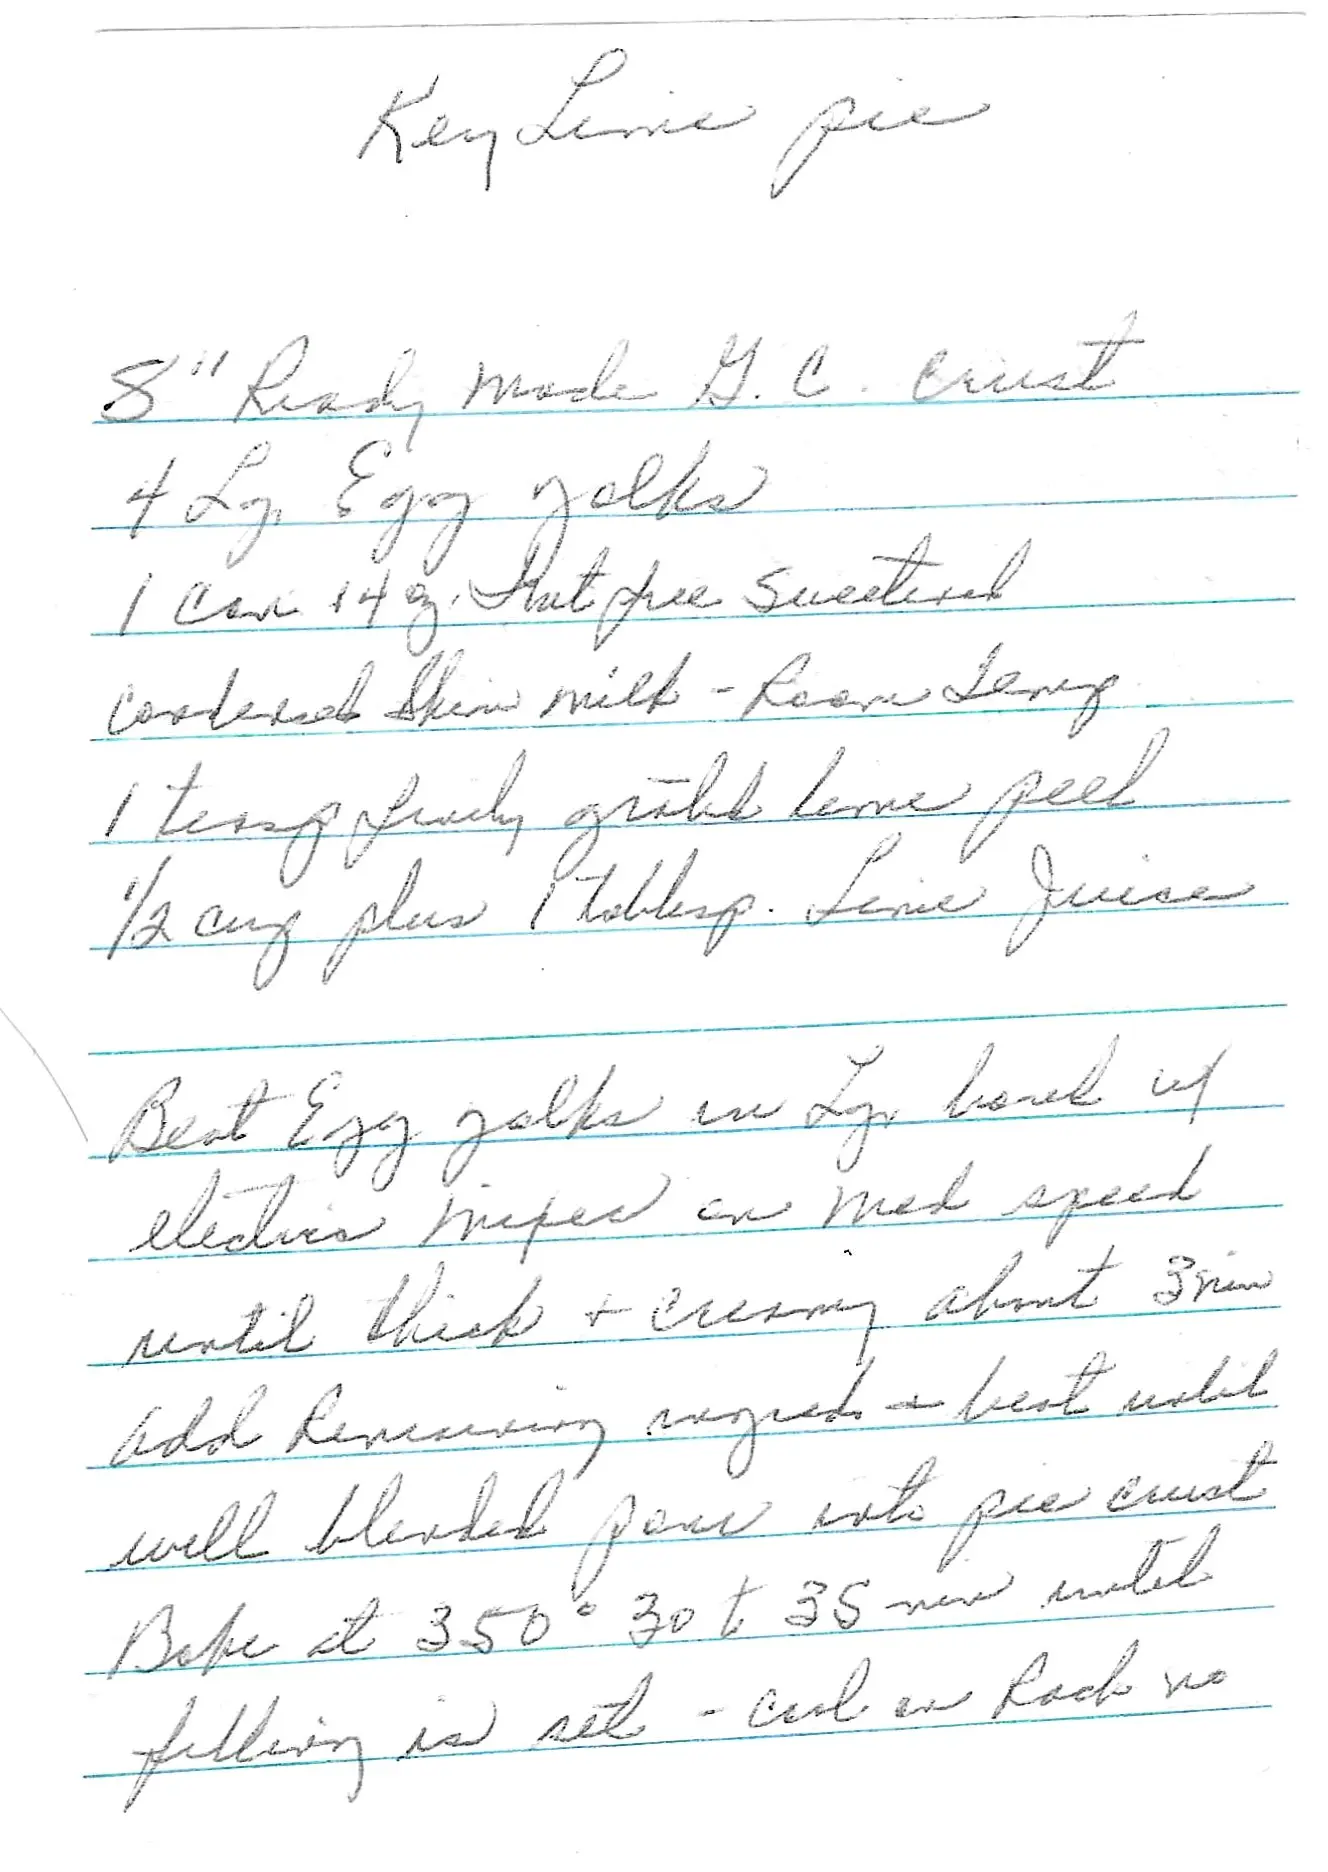 Key Lime pie
8" Ready made G.C. crust
4 Lg. Egg yolks
1 can 14 oz. Fat free sweetened
condensed skim milk - Room Temp.
1 teasp finely grated lime peel
1/2 cup plus 1 tablesp. Lime Juice
Beat Egg yolks in Lg. bowl w/
electric mixer on med speed
until thick + creamy about 3 min
add Remaining ingred. + beat until
well blended pour into pie crust
Bake at 350° 30 t 35 min until
filling is set - cool on Rack no